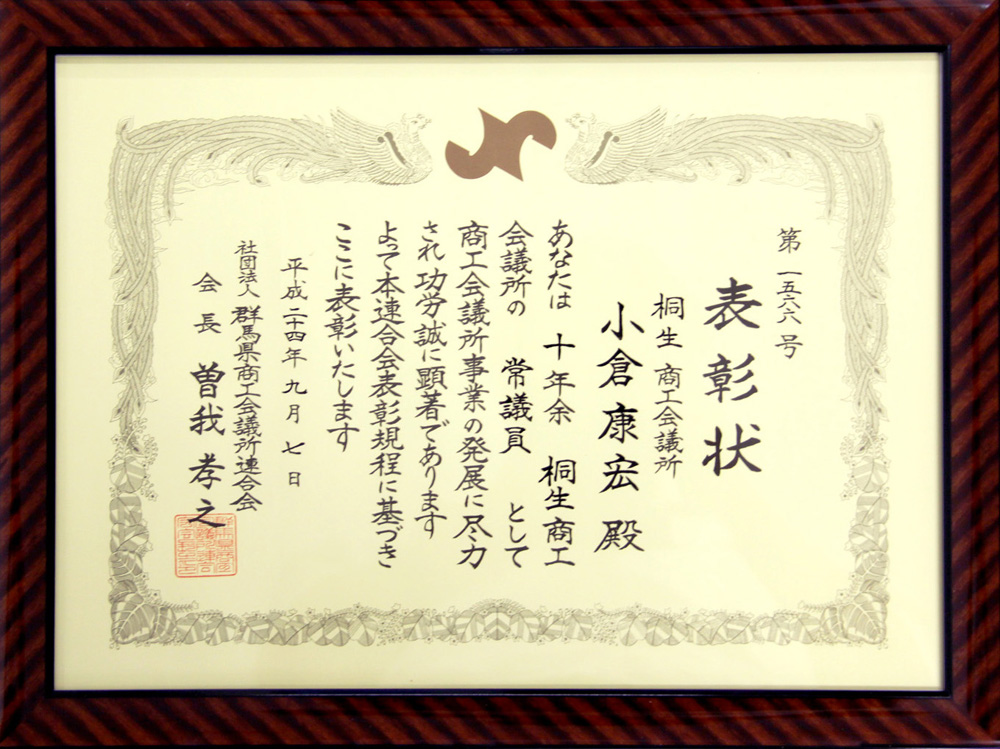 第一五六六号
表彰状
桐生 商工会議所
小倉康宏 殿
あなたは 十年余 桐生商工
会議所の 常議員 として
商工会議所事業の発展に尽力
され功労誠に顕著であります
よって本連合会表彰規程に基づき
ここに表彰いたします
平成二十四年九月七日
社団法人 群馬県商工会議所連合会
会長 曽我孝之